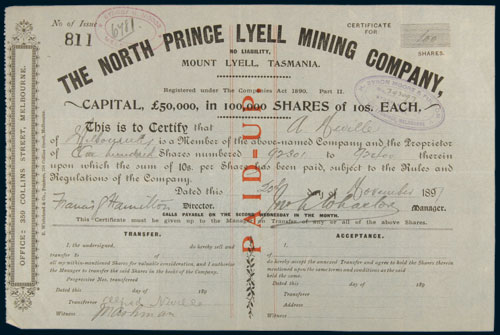 No. of Issue
811
6411
CERTIFICATE FOR
100
SHARES.
THE NORTH PRINCE LYELL MINING COMPANY,
NO LIABILITY,
MOUNT LYELL, TASMANIA.
Registered under The Companies Act 1890, Part II.
CAPITAL, £50,000, in 100,000 SHARES of 10s. EACH.
This is to Certify that A. Neville
of Melbourne is a Member of the above-named Company and the Proprietor
of One hundred Shares numbered to therein
upon which the sum of 10s. per Share has been paid, subject to the Rules and
Regulations of the Company.
Dated this day of November 1897
Francis Hamilton Director. Manager.
CALLS PAYABLE ON THE SECOND WEDNESDAY IN THE MONTH.
This Certificate must be given up to the Manager on Transfer of any or all of the above Shares.
PAID-UP.
OFFICE: 339 COLLINS STREET, MELBOURNE.
TRANSFER.
I, the undersigned, do hereby sell and
transfer to of
all my above-mentioned Shares for valuable consideration, and I authorise
the Manager to transfer the said Shares in the books of the Company.
Progressive Nos. transferred
Dated this day of 189
Transferror Alfred Neville
Witness
ACCEPTANCE.
I, of
do hereby accept the annexed Transfer and agree to hold the Shares therein
mentioned upon the same terms and conditions as the said
held the same.
Dated this day of 189
Transferree
Address
Witness